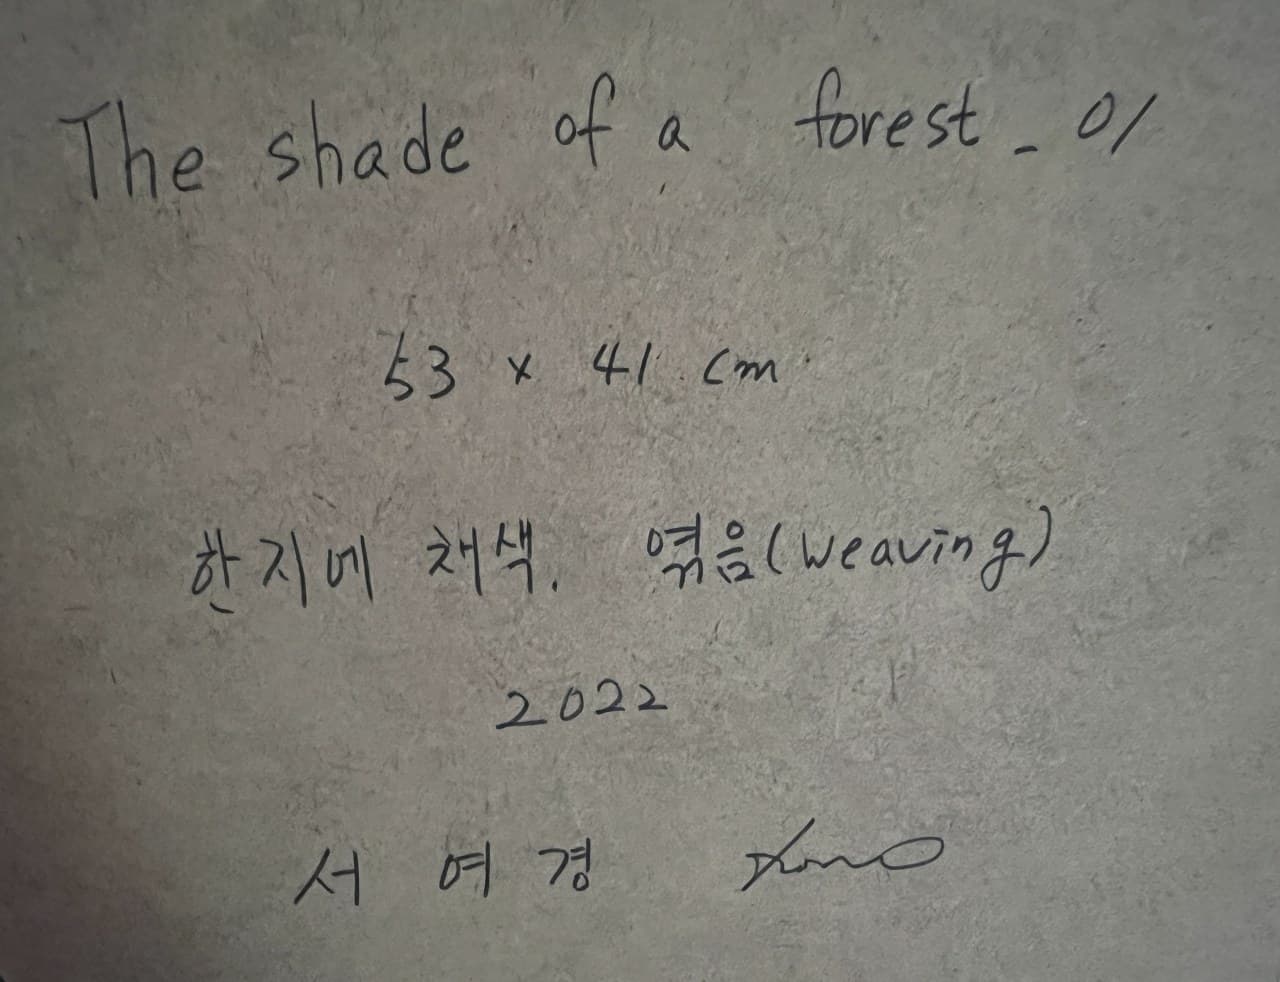 The shade of a forest_01
53 x 41 cm
한지에 채색. 엮음(weaving)
2022
서 여 경